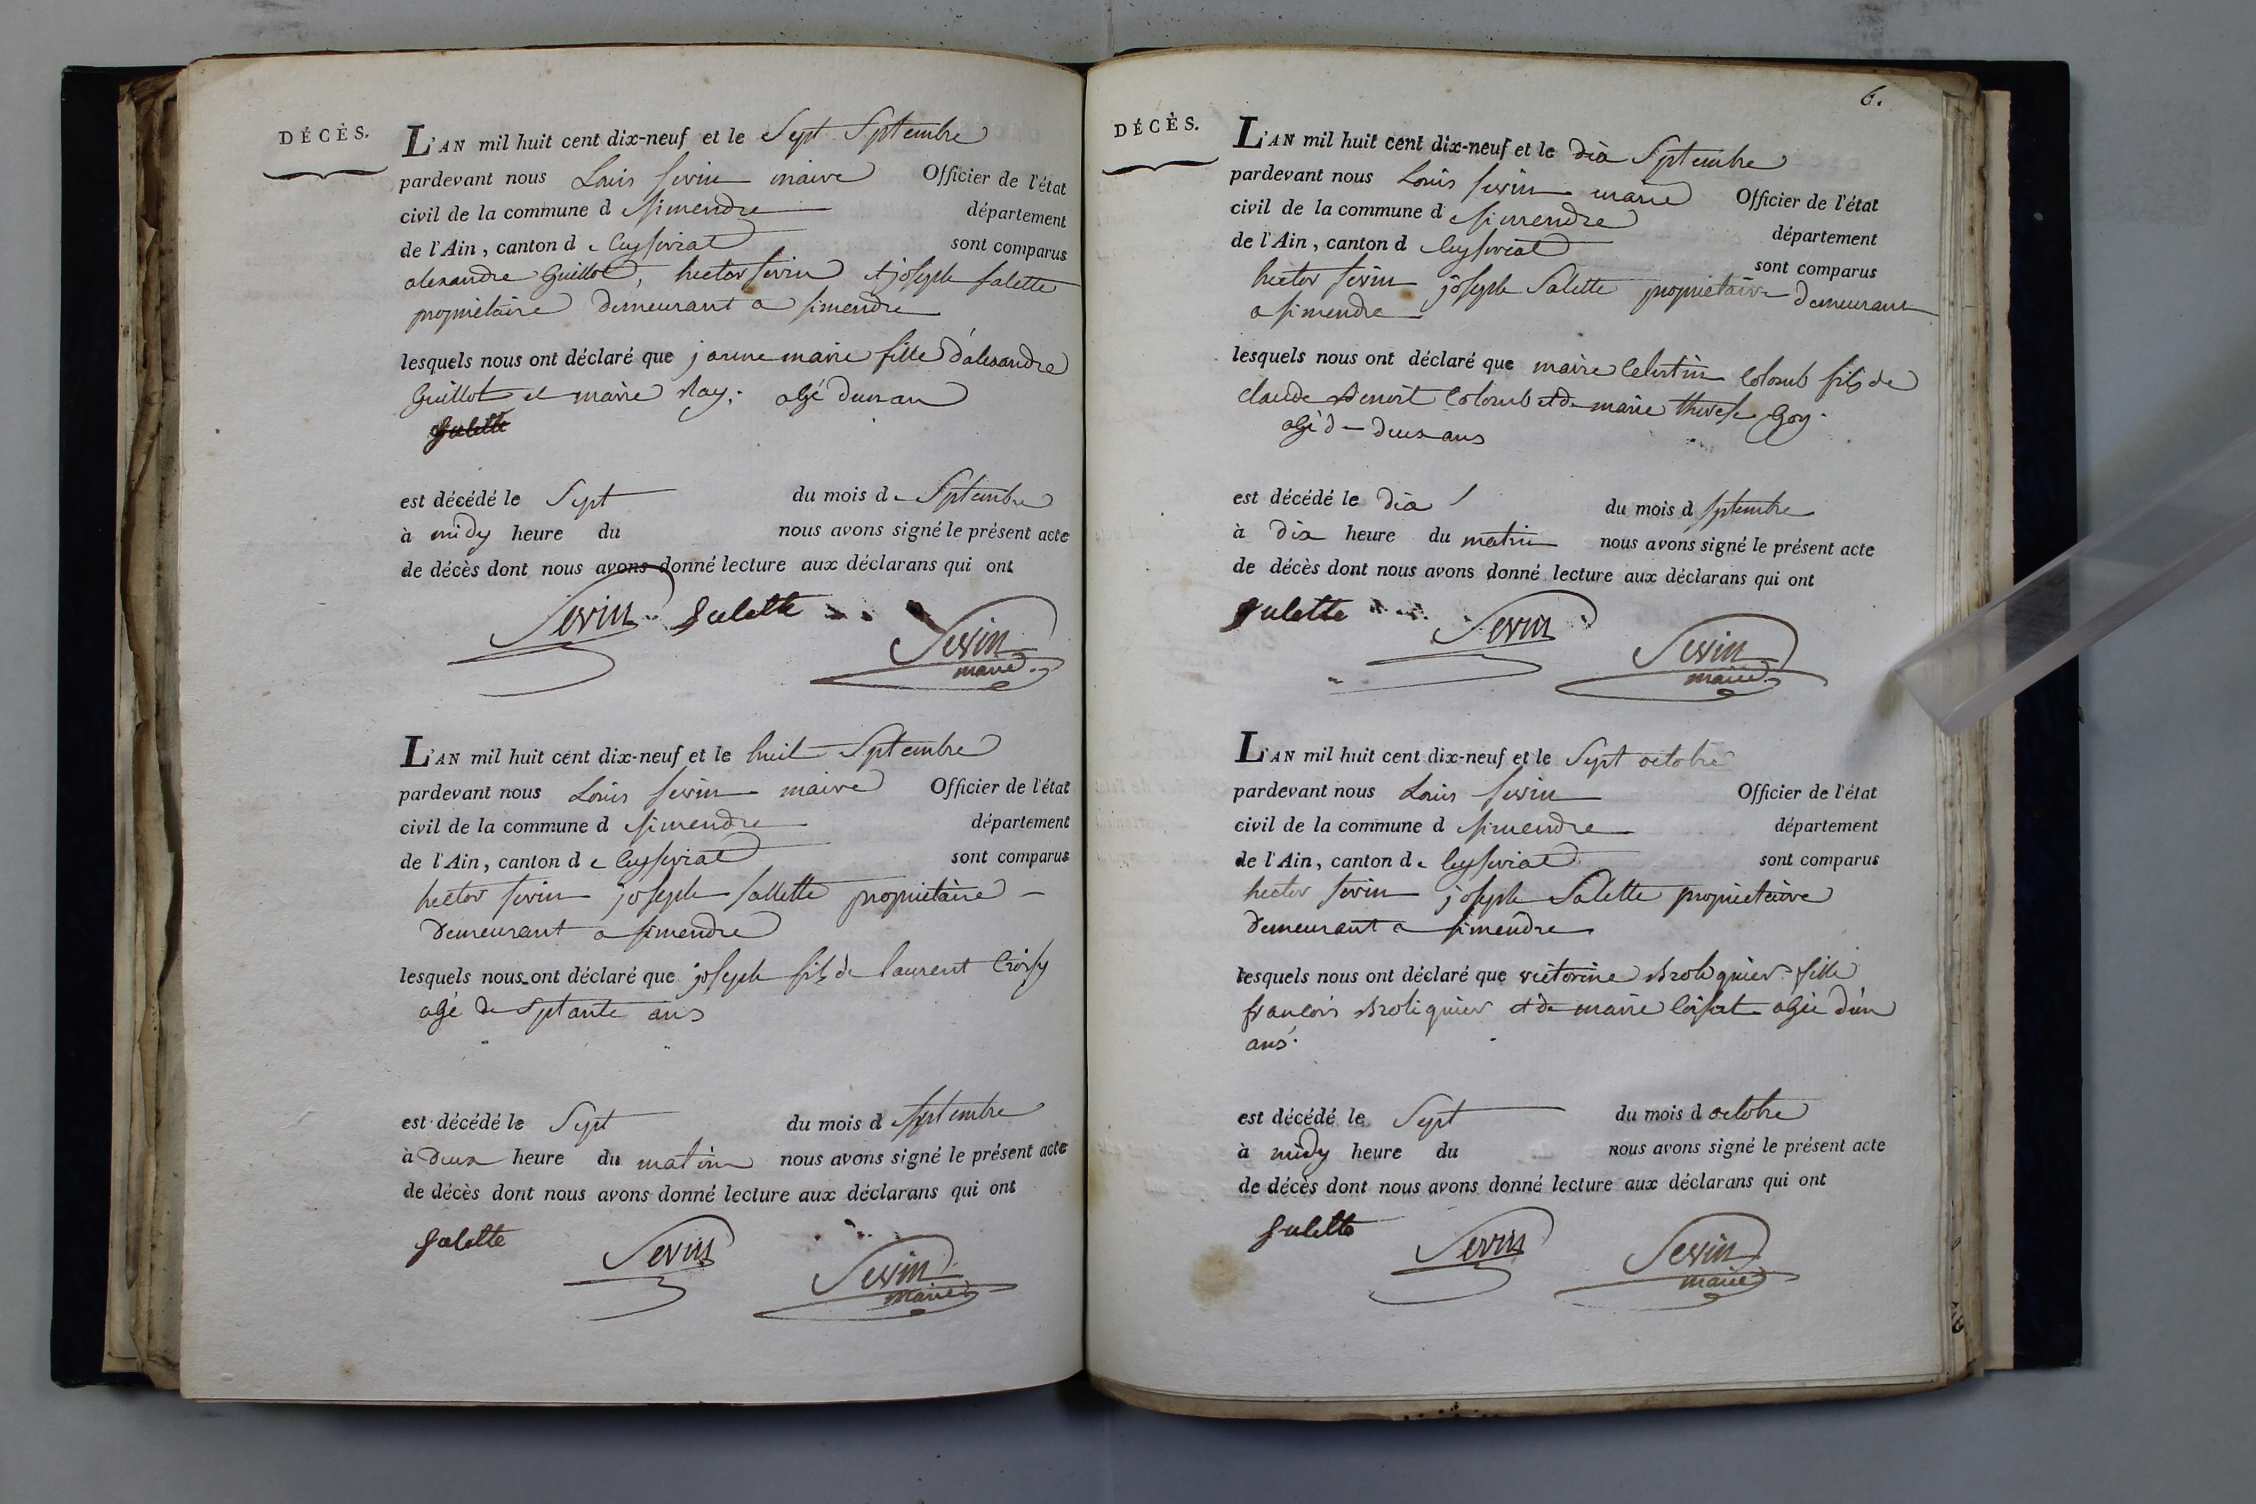 DÉCÈS.
L'AN mil huit cent dix-neuf et le Sept Septembre
pardevant nous Louis Sevin maire Officier de l'état
civil de la commune d Simendre département
de l'Ain, canton de Ceyseriat sont comparus
alexandre Guillot, hector Sevin et joseph Salette
proprietaire demeurant a Simendre
lesquels nous ont déclaré que marie fille d'alexandre
Guillot et marie Ray. agé d'un an
Salette
est décédé le Sept du mois de Septembre
à midy heure du nous avons signé le présent acte
de décès dont nous avons donné lecture aux déclarans qui ont
Sevin Salette
Sevin
maire
L'AN mil huit cent dix-neuf et le huit Septembre
pardevant nous Louis Sevin maire Officier de l'état
civil de la commune d Simendre département
de l'Ain, canton de Ceyseriat sont comparus
hector Sevin joseph Sallette proprietaire
Demeurant a Simendre
lesquels nous ont déclaré que joseph fils de laurent
agé de Septante ans
est décédé le Sept du mois d Septembre
à deux heure du matin nous avons signé le présent acte
de décès dont nous avons donné lecture aux déclarans qui ont
Salette Sevin
Sevin
maire
6.
DÉCÈS.
L'AN mil huit cent dix-neuf et le dix Septembre
pardevant nous Louis Sevin maire Officier de l'état
civil de la commune d Simendre département
de l'Ain, canton d Ceyseriat sont comparus
hector Sevin joseph Salette proprietaire demeurant
a Simendre
lesquels nous ont déclaré que marie Celestin Colomb fils de
claude Benoit Colomb et de marie therese Goy.
agé de deux ans
est décédé le dix du mois d Septembre
à Dix heure du matin nous avons signé le présent acte
de décès dont nous avons donné lecture aux déclarans qui ont
Salette Sevin
Sevin
maire
L'AN mil huit cent dix-neuf et le Sept octobre
pardevant nous Louis Sevin Officier de l'état
civil de la commune d Simendre département
de l'Ain, canton de Ceyseriat sont comparus
hector Sevin joseph Salette proprietaire
Demeurant a Simendre
lesquels nous ont déclaré que victorine Broliquier fille
francois Broliquier et de marie agée d'un
ans.
est décédé le Sept du mois d octobre
à midy heure du nous avons signé le présent acte
de décès dont nous avons donné lecture aux déclarans qui ont
Salette Sevin
Sevin
maire